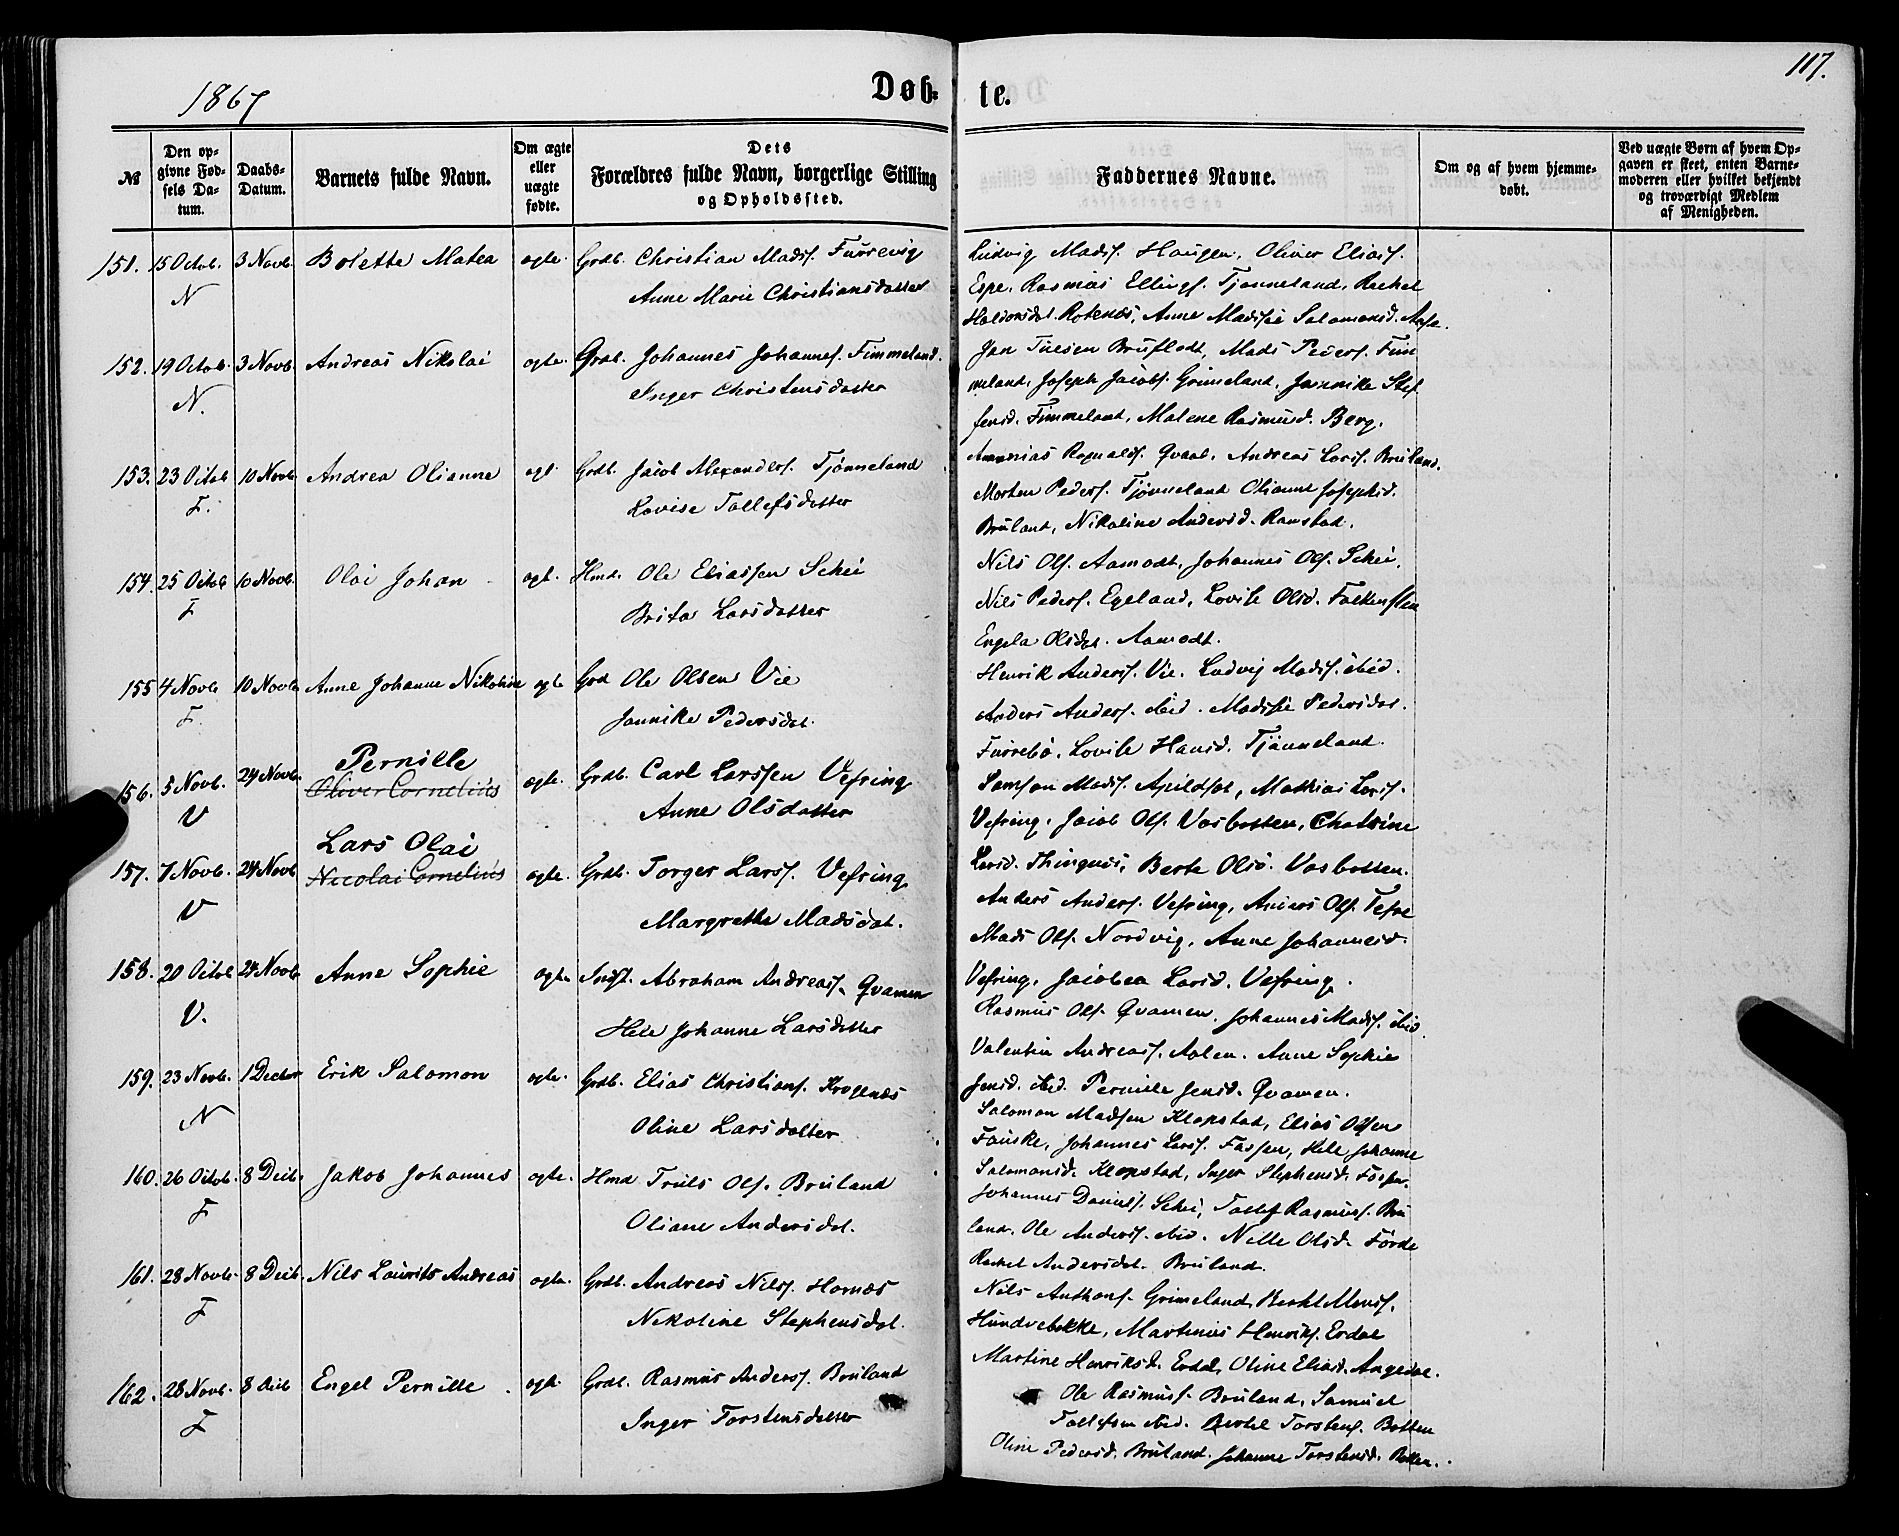 1867
Døb- te.
117.
№
Den op-
givne Fød-
sels Da-
tum.
Daabs-
Datum.
Barnets fulde Navn.
Om ægte
eller
uægte
fødte.
Dets
Forældres fulde Navn, borgerlige Stilling
og Opholdssted.
Faddernes Navne.
Om og af hvem hjemme-
døbt.
Ved uægte Børn af hvem Op-
gaven er skeet, enten Barne-
moderen eller hvilket bekjendt
og troværdigt Medlem
af Menigheden.
151. 15 Octob. 3 Novb. Bolette Matea ægte. Grdb. Christian Mads. Furevig
N Anne Marie Christiansdatter
Ludvig Mads. Haugen, Oliver Elias.
Espe. Rasmus Ellings. Tjønneland, Rachel
Haldorsdat. Rotenæs, Anne Madsie Salomonsd.
152. 19 Octob. 3 Novb. Andreas Nikolai ægte. Grdb. Johannes Johannes. Fimmeland.
N. Inger Christensdatter
Jan Tuesen Bruflodt, Mads Peders. Fim
meland, Joseph Jacobs. Grimeland, Jannike Stef
fensd. Fimmeland, Malene Rasmusd. Berg.
153. 23 Octob 10 Novb. Andrea Olianne ægt. Grdb. Jacob Alexanders. Tjønneland
F. Lovise Tollefsdatter
Ananias Ragnalds. Qvaal. Andreas Lars. Bruland.
Morten Peders. Tjønneland Olianne Josephsd.
Bruland, Nikoline Andersd. Ramstad.
154. 25 Octob 10 Novb. Olai Johan ægt. Hmd. Ole Eliassen Schei
F Brita Larsdatter
Nils Ols. Aamodt, Johannes Ols. Schei.
Nils Peders. Egeland, Lovise Olsd. Falkensten
Engela Olsdat. Aamodt.
155 4 Novb 10 Novb. Anne Johanne Nikoline ægte Grd Ole Olsen Vie
F. Jannike Pedersdat.
Henrik Anders. Vie. Ludvig Mads. ibid.
Anders Anders. ibid. Madsie Pedersdat.
Furrebö. Lovise Hansd. Tjønneland.
156. 5 Novb. 24 Novb. Pernille ægte. Grdb. Carl Larssen Vefring
Oliver Cornelius
V Anne Olsdatter
Samson Mads. Apildset, Mathias Lars.
Vefring. Jacob Ols. Vasbotten, Chatrine
Larsd. Thingnæs, Berte Olsd. Vasbotten.
157. 7 Novb. 24 Novb Lars Olai ægte. Grdb. Torger Lars. Vefring
Nicolai Cornelius
V Margrethe Madsdat.
Anders Anders. Vefring, Anders Ols. Tefre
Mads Ols. Nordvig, Anne Johannesd.
Vefring, Jacobea Larsd. Vefring.
158. 20 Octob 24 Novb. Anne Sophie ægte Indst. Abraham Andreas. Qvamen
V. Hele Johanne Larsdatter
Rasmus Ols. Qvamen. Johannes Mads. ibid
Valentin Andreas. Aalen. Anne Sophie
Jensd. ibid. Pernille Jensd. Qvamen.
159. 23 Novb. 1 Decbr Erik Salomon ægte. Grdb. Elias Christians. Krogenæs
N Oline Larsdatter
Salomon Madsen Klopstad, Elias Olsen
Fauske, Johannes Lars. Fossen, Hele Johanne
Salomonsd. Klopstad, Inger Stephensd. Fossen.
160. 26 Octob. 8 Decb. Jakob Johannes ægte. Hmd Truls Ols. Bruland
F Oliane Andersdat.
Johannes Daniels. Schei, Tollef Rasmus. Bru
land. Ole Anders. ibid. Nille Olsd. Förde
Rachel Andersdat. Bruland.
161. 28 Novb. 8 Decb. Nils Laurits Andreas ægte. Grdb. Andreas Nils. Hornæs
F Nikoline Stephensdat.
Nils Anthons. Grimeland, Berthel Mons.
Hundvebakke, Martinus Henriks. Erdal
Martine Henriksd. Erdal, Oline Eliasd. Angedal.
162. 28 Novb. 8 Decb Engel Pernille ægt. Grdb. Rasmus Anders. Bruland
F Inger Torstensdatter
Ole Rasmus. Bruland, Samuel
Tollefsen ibid. Berthel Torstens. Botten
Oline Pedersd. Bruland. Johanne Torstensd. Botten.